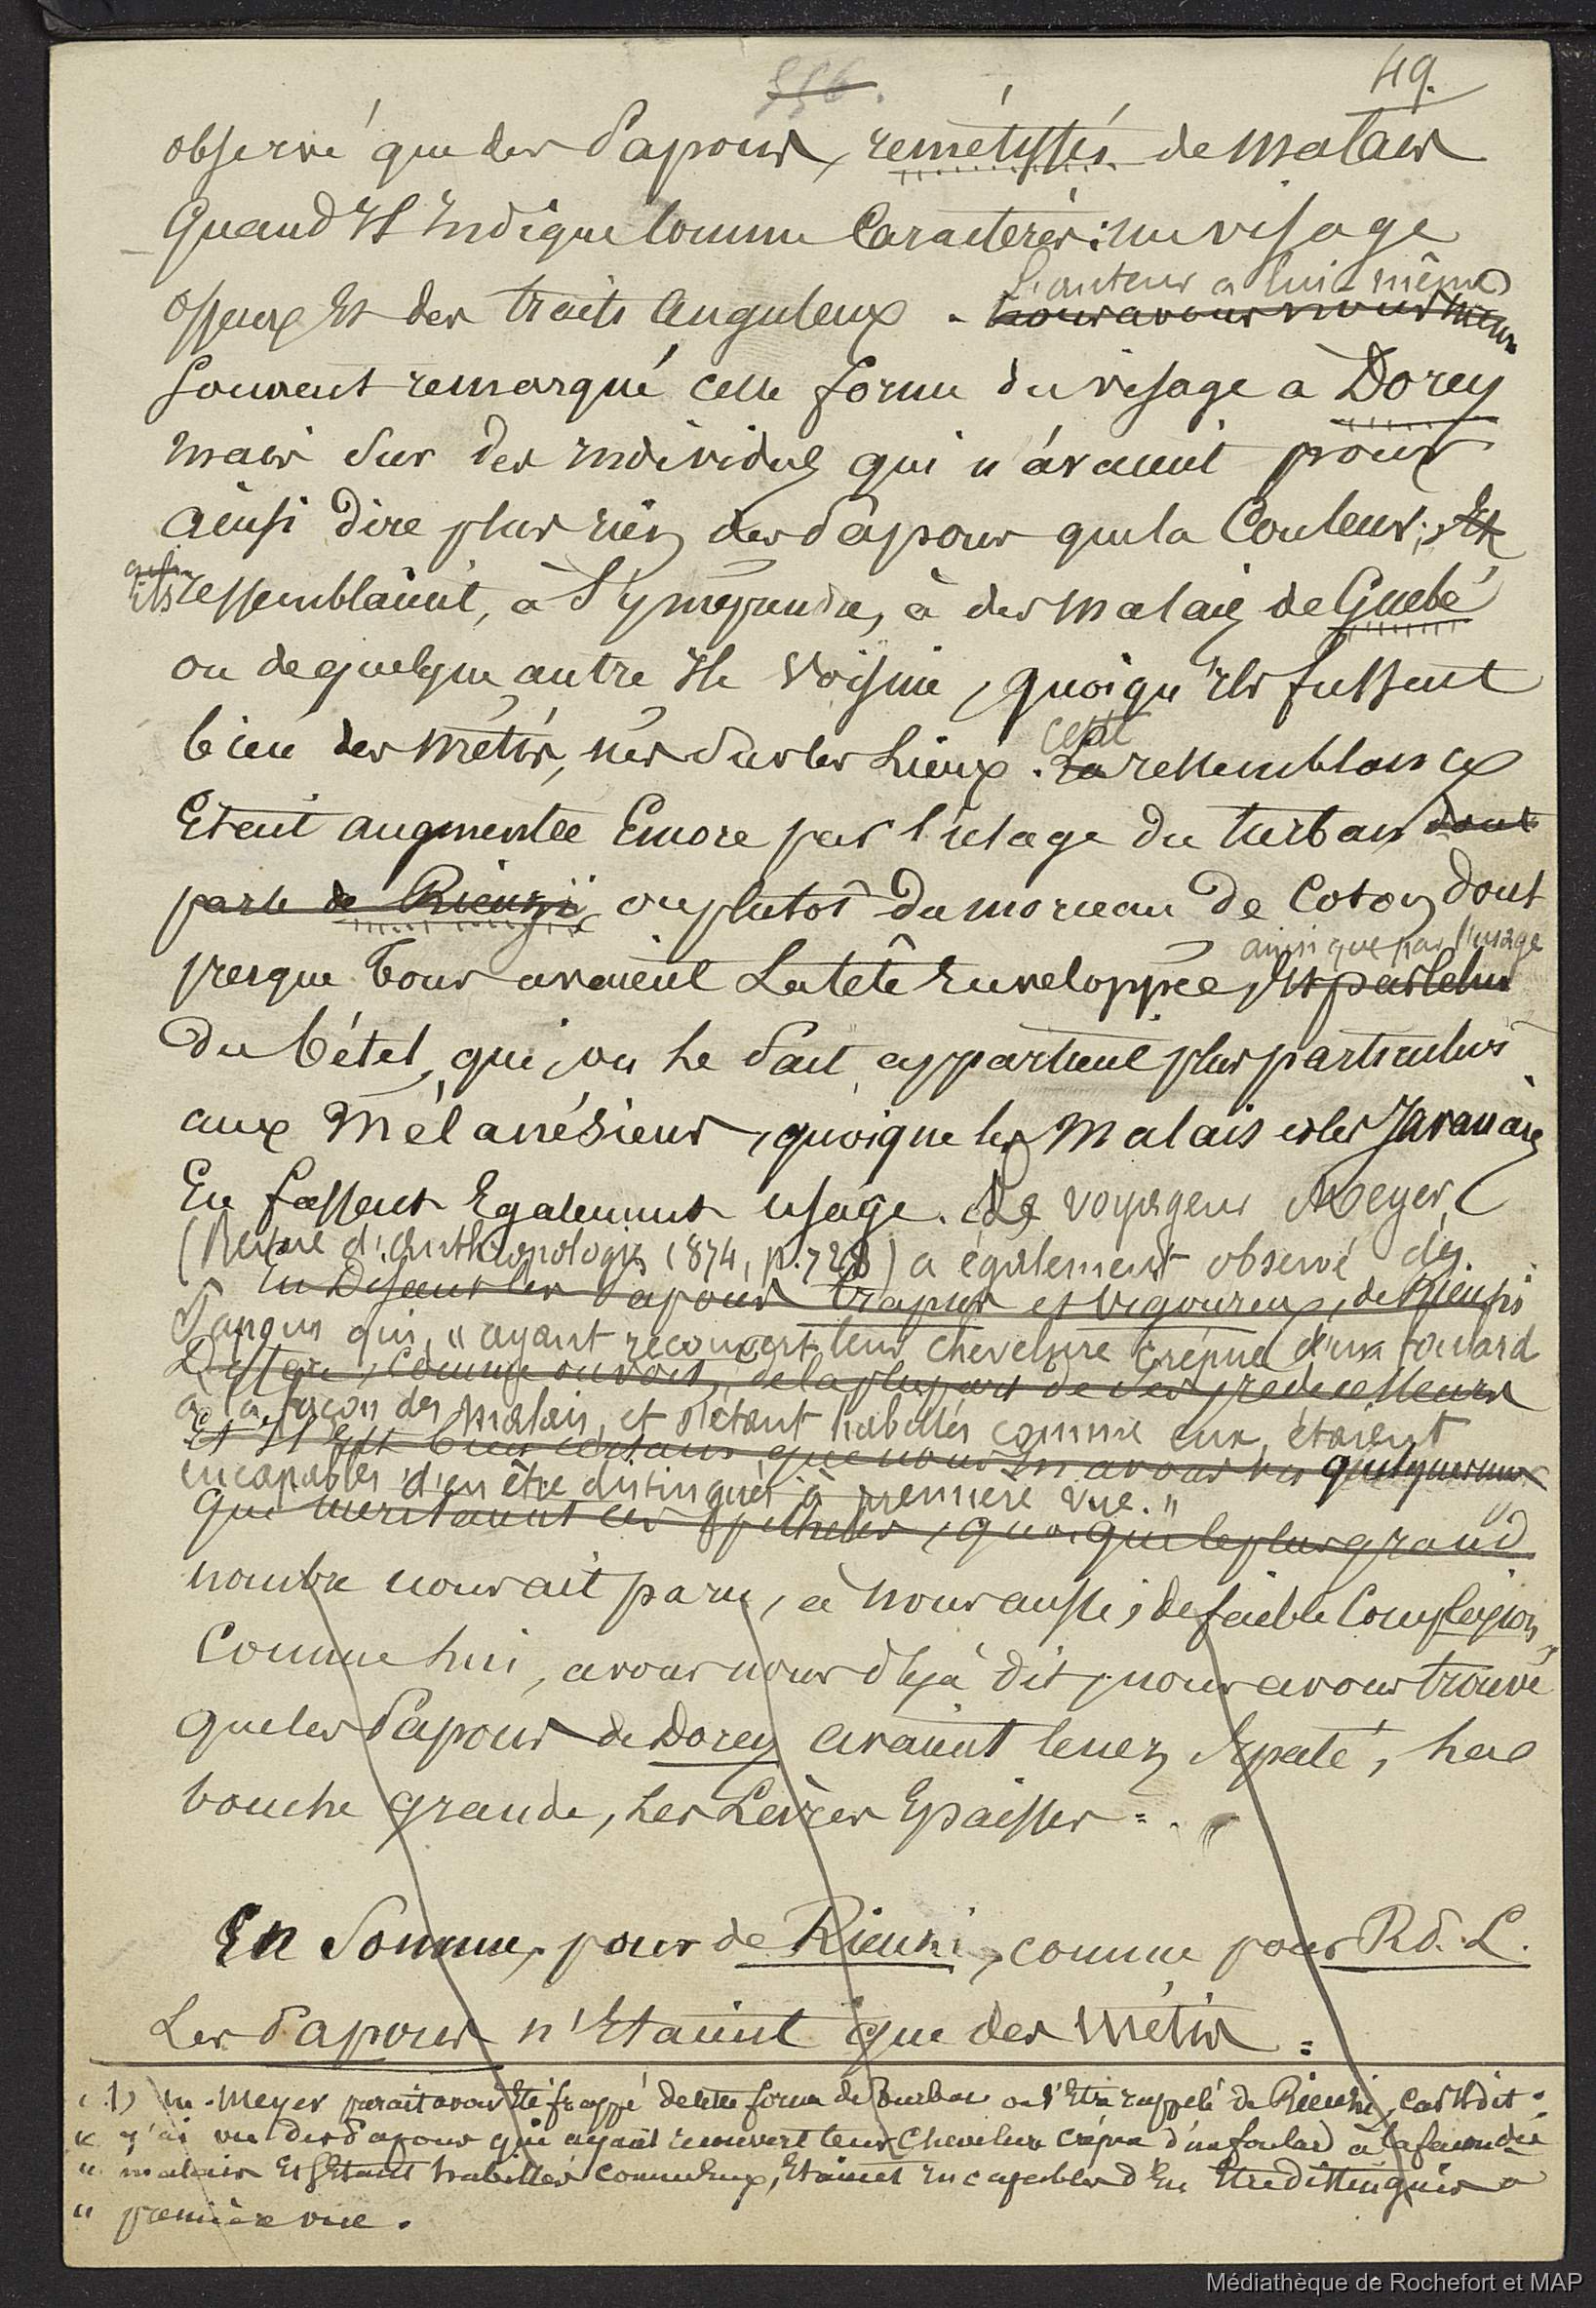 556.
49.
observé que des Papous, remétissés de malais
Quand Il Indique comme Caractères : un visage
osseux Et des traits Anguleux. L'auteur a lui-même
nous avons nous même
souvent remarqué cette forme du visage à Dorey
mais sur des individus qui n'avaient pour
ainsi dire plus rien des Papous que la Couleur ; Et
qui
Ils ressemblaient, à s'y méprendre, à des malais de Guébé
ou de quelque autre Ile Voisine, quoiqu'ils fussent
bien des métis, nés sur les Lieux. cette La ressemblance
Etait augmentée Encore par l'usage du turban dont
parle de Rienzi ou plutôt du morceau de Coton dont
presque tous avaient La tête Enveloppée, ainsi que par l'usage
Et par celui
du bétel, qui, on le sait, appartient plus particulièrt
aux Mélanésiens, quoique les Malais et les Javanais
En fassent Egalement usage. Le voyageur Meyer
(Revue d'Anthropologie 1874, p. 728) a également observé des
En disant les Papous trapus et vigoureux, de Rienzi
Papous qui, "ayant recouvert leur chevelure crépue d'un foulard
Diffère, comme on voit, de la plupart de ses prédécesseurs
à la façon des Malais, et s'étant habillés comme eux, étaient
Et Il Est bien certain que nous En avons vu quelques uns
incapables d'en être distingués à première vue."
qui méritaient ces épithètes, quoique le plus grand
nombre nous ait paru, à nous aussi, de faible Complexion
Comme lui, avons nous déjà dit, nous avons trouvé
que les Papous de Dorey avaient le nez Epaté, La
bouche grande, Les Lèvres Epaisses.
En Somme, pour de Rienzi, comme pour Rd. L.
Les Papous n'Etaient que des Métis.
(1) M. Meyer parait avoir Eté frappé de cette forme de turban
car Il dit :
" J'ai vu des Papous qui ayant recouvert leur Chevelure crépue d'un foulard à la façon des
" malais Et s'Etant habillés comme Eux, Etaient Incapables d'En Etre distingués à
" première vue.
Médiathèque de Rochefort et MAP